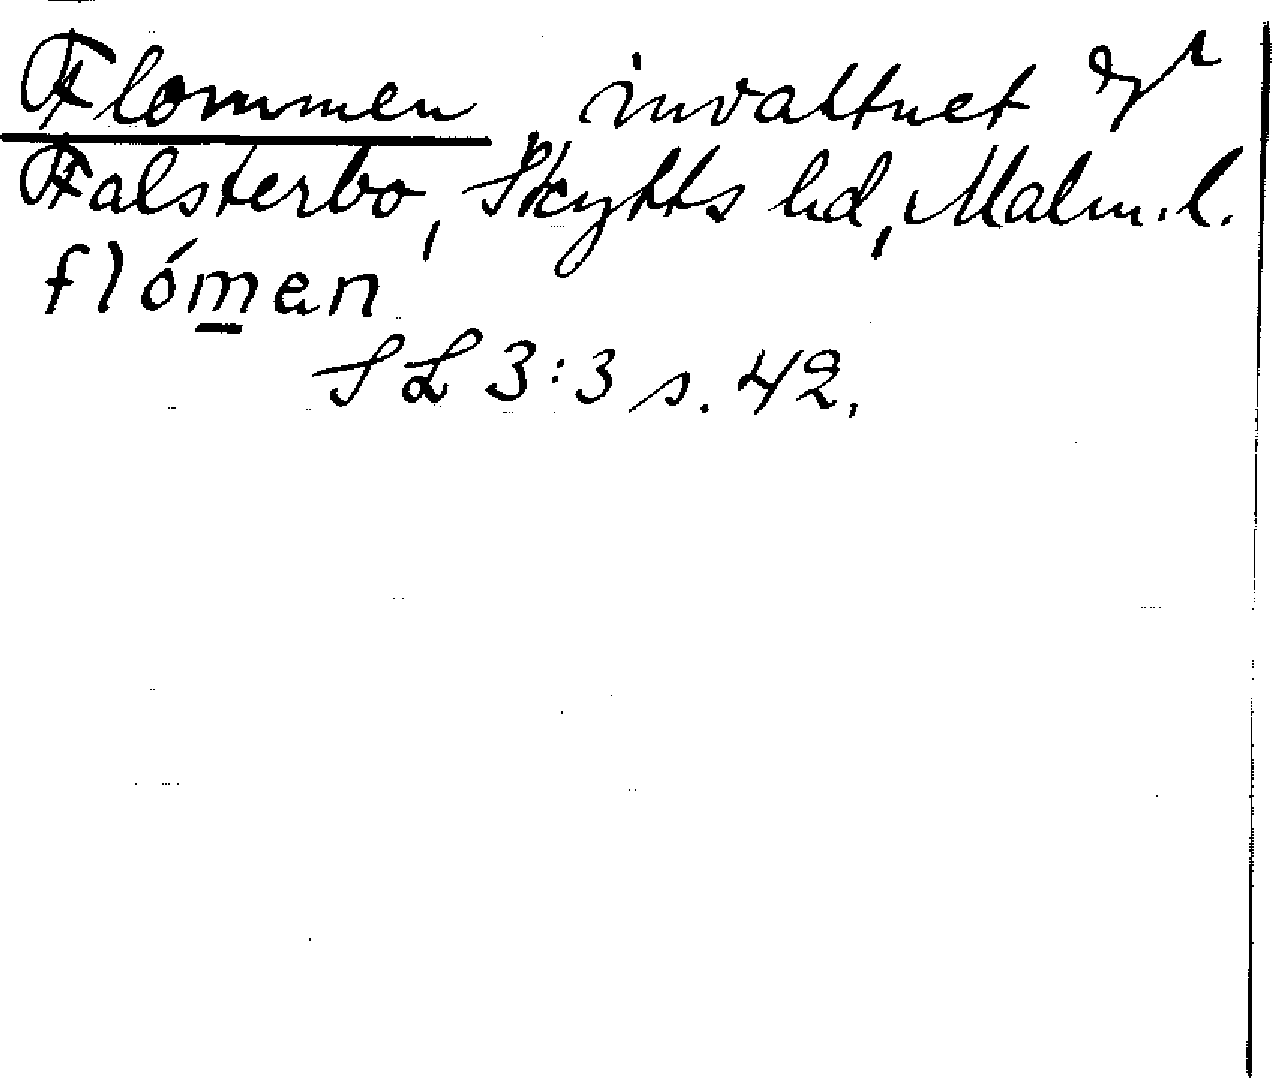 Flommen, invattnet
Falsterbo, Skytts hd, Malm. l.
flómen
SL 3:3 s. 42.